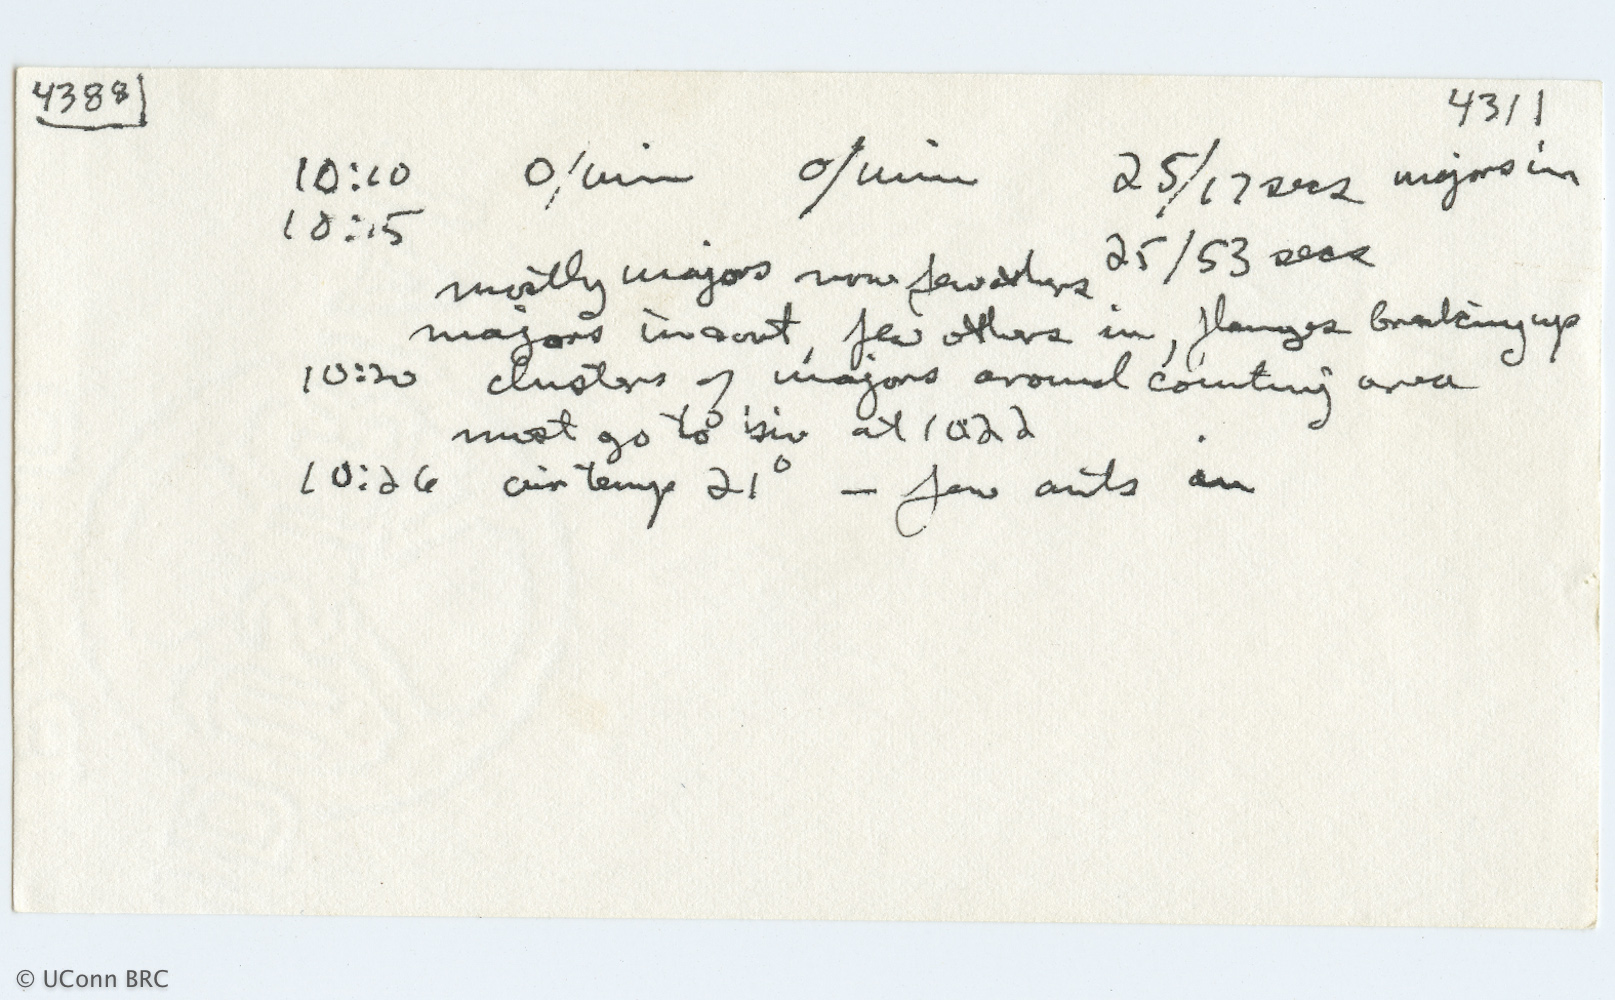 4388 4311
10:10 0/min 0/min 25/17 secs majors in
10:15 25/53 secs
mostly majors now few others
majors in & out, few others in, flanges breaking up
10:20 clusters of majors around counting area
must go to biv at 1022
10:26 air temp 21° — few ants in
© UConn BRC